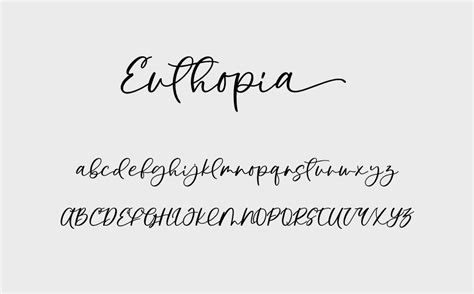 Euthopia
abcdefghijklmnopqrstuvwxyz
ABCDEFGHIJKLMNOPQRSTUVVXYZ